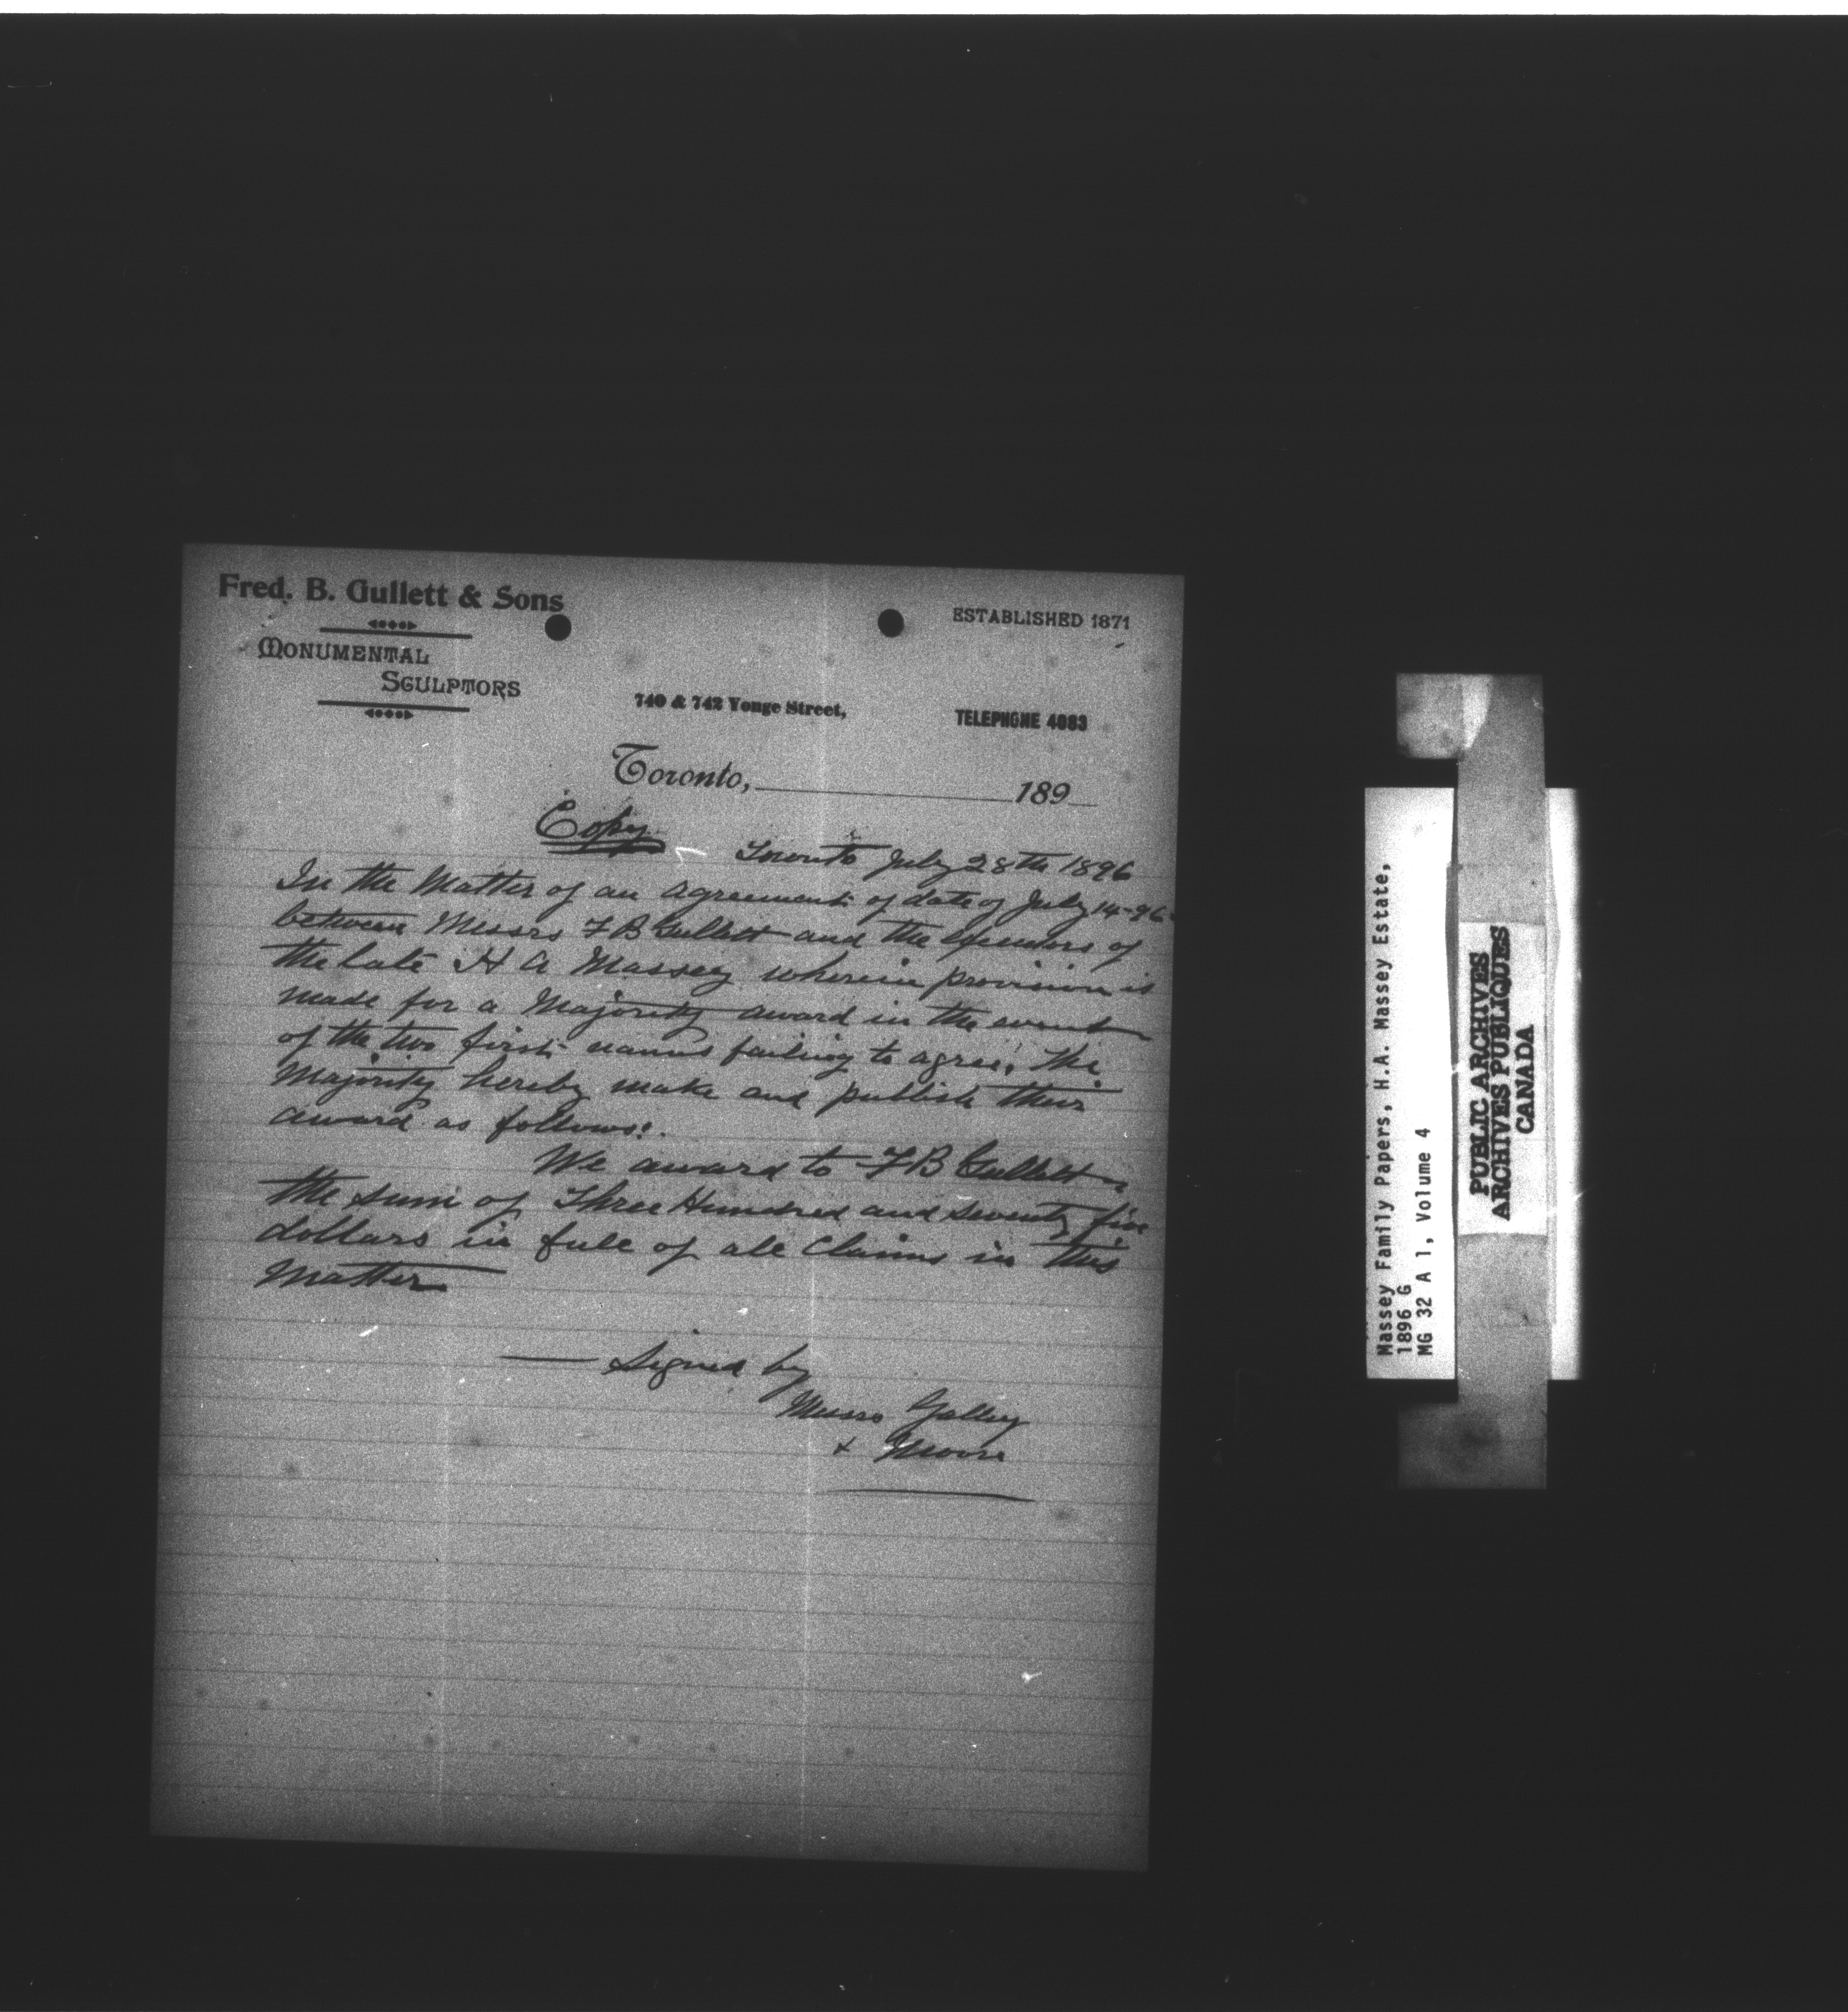 Fred. B. Gullett & Sons
ESTABLISHED 1871
MONUMENTAL
SCULPTORS
740 & 742 Yonge Street,
TELEPHONE 4083
Toronto, 189
Copy
Toronto July 28th 1896
In the Matter of an agreement of date of July 14-96
between Messrs F B Gullett and the Executors of
the late H A Massey wherein provision is
made for a Majority award in the event
of the two first names failing to agree, the
Majority hereby make and publish their
award as follows:
We award to F B Gullett
the sum of Three Hundred and seventy five
dollars in full of all Claims in this
Matter
Signed by
Messrs Galley
& Moore
Massey Family Papers, H.A. Massey Estate,
1896 G
MG 32 A 1, Volume 4
PUBLIC ARCHIVES
ARCHIVES PUBLIQUES
CANADA